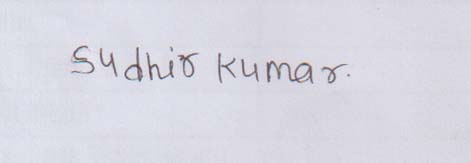 Sudhir Kumar.